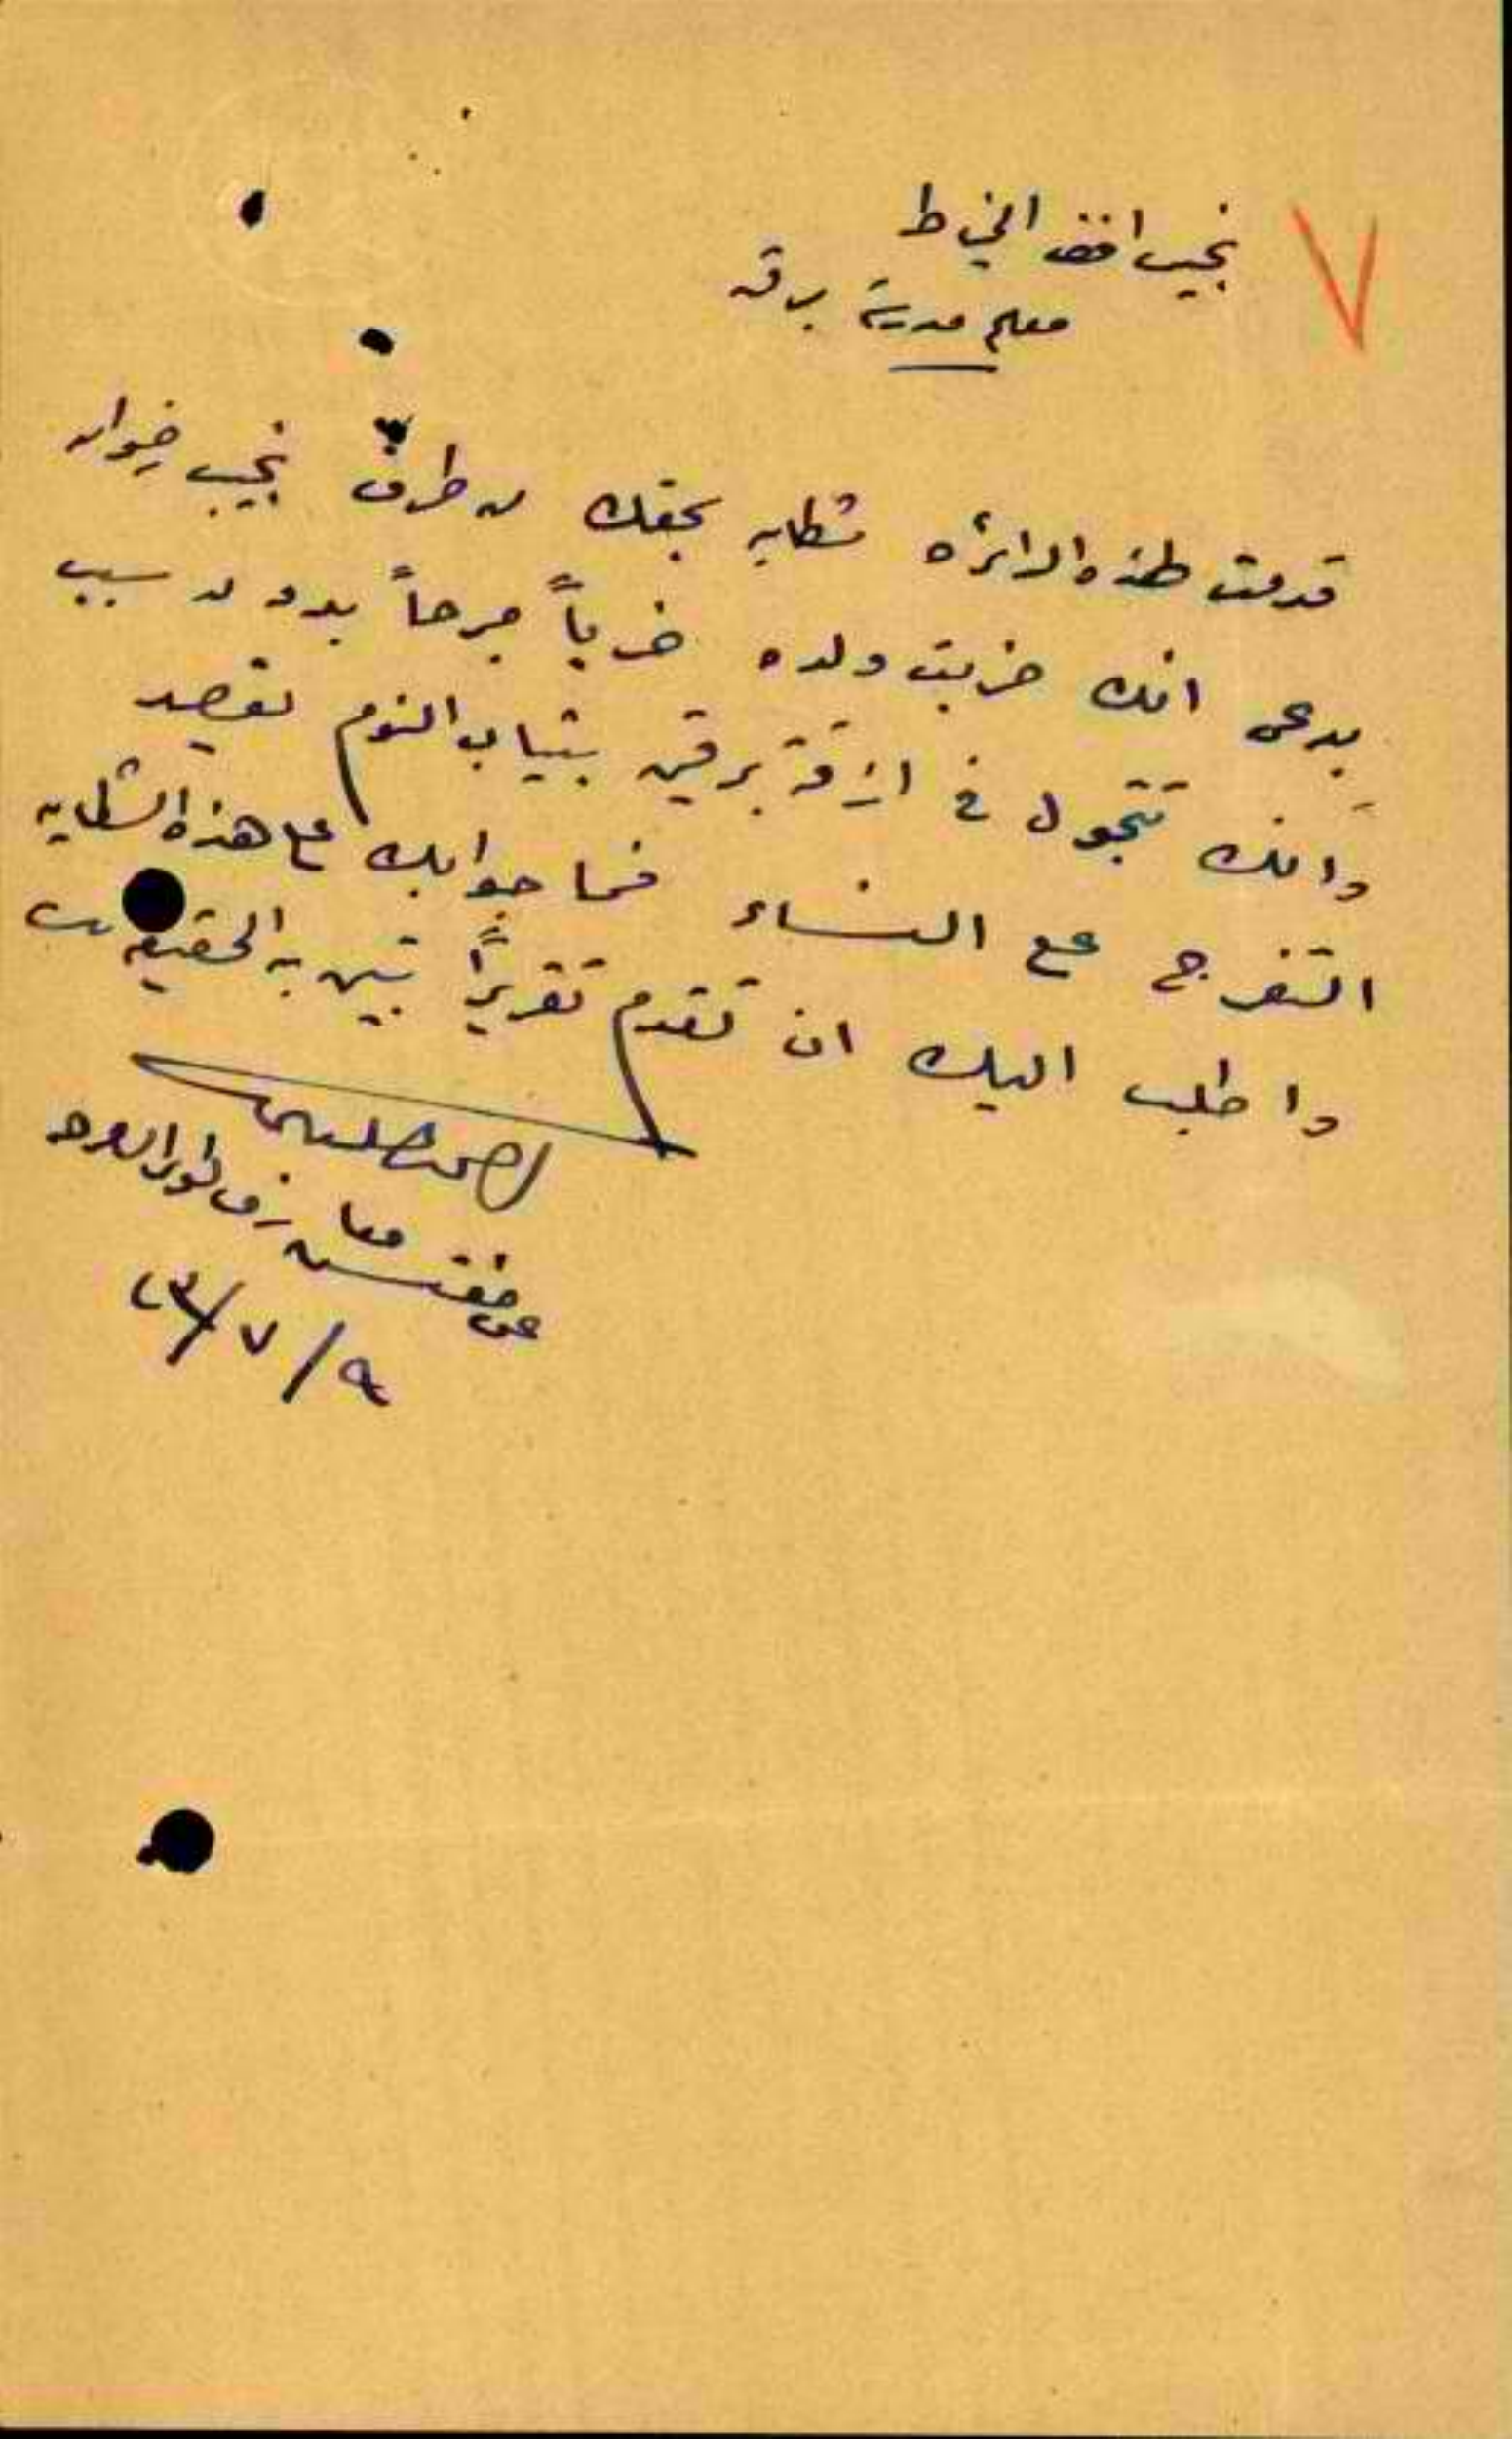 نجيب افندي الخياط
معلم مدرسة برقه
قدمت لهذه الدائره شكايه بحقك من طرف نجيب
يدعى انك ضربت ولده ضرباً مبرحاً بدون سبب
وانك تتجول في ازقة برقين بثياب النوم بقصد
التفرج مع النساء فما جوابك على هذه الشكايه
واطلب اليك ان تقدم تقريرًا تبين به الحقيقه
عن مفتش معارف لواء
٩/٧/٢٣